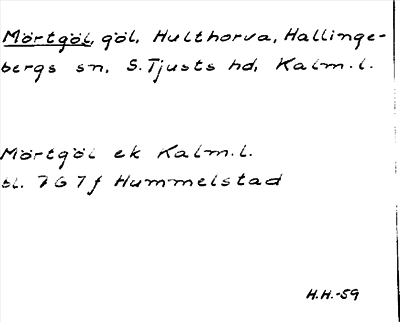 Mörtgöl, göl, Hulthorva, Hallinge-
bergs sn, S. Tjusts hd, Kalm. l.
Mörtgöl ek Kalm. l.
bl. 7G 7f Hummelstad
H.H.-59